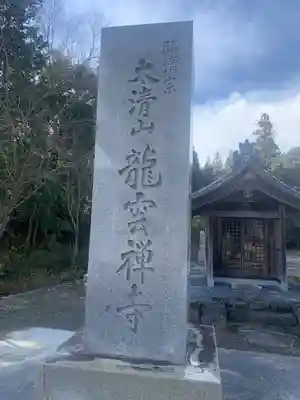 臨済宗
太清山龍雲禅寺